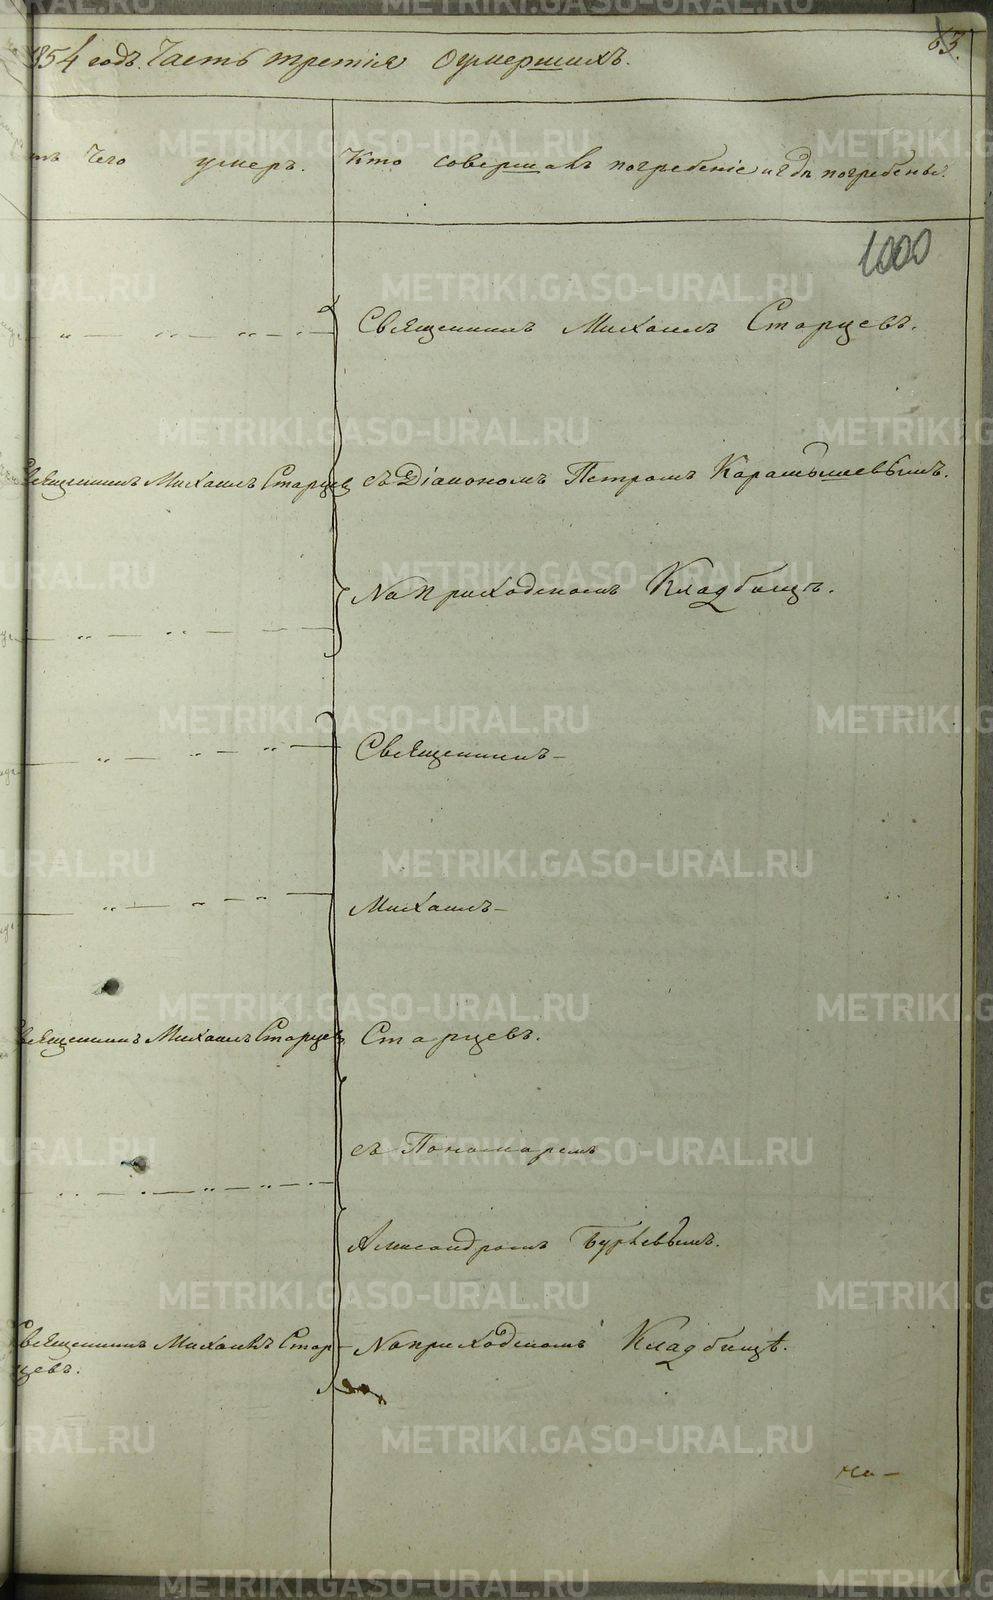 63.
1854 годъ. Часть третія Оумершихъ.
Чего умеръ. Кто совершалъ погребеніе и гдѣ погребены.
1000
Священникъ Михаилъ Старцевъ.
Священникъ Михаилъ Старцев съ Діакономъ Петромъ
На приходскомъ Кладбищѣ.
Священникъ –
Михаилъ –
Священникъ Михаилъ Старцевъ Старцевъ.
съ Пономаремъ
Александромъ
Священникъ Михаилъ Стар- На приходскомъ Кладбищѣ.
цевъ.
На –
METRIKI.GASO-URAL.RU